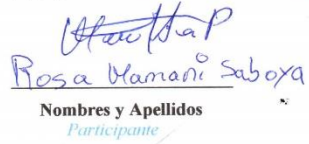 Rosa Mamani Saboya
Nombres y Apellidos
Participante